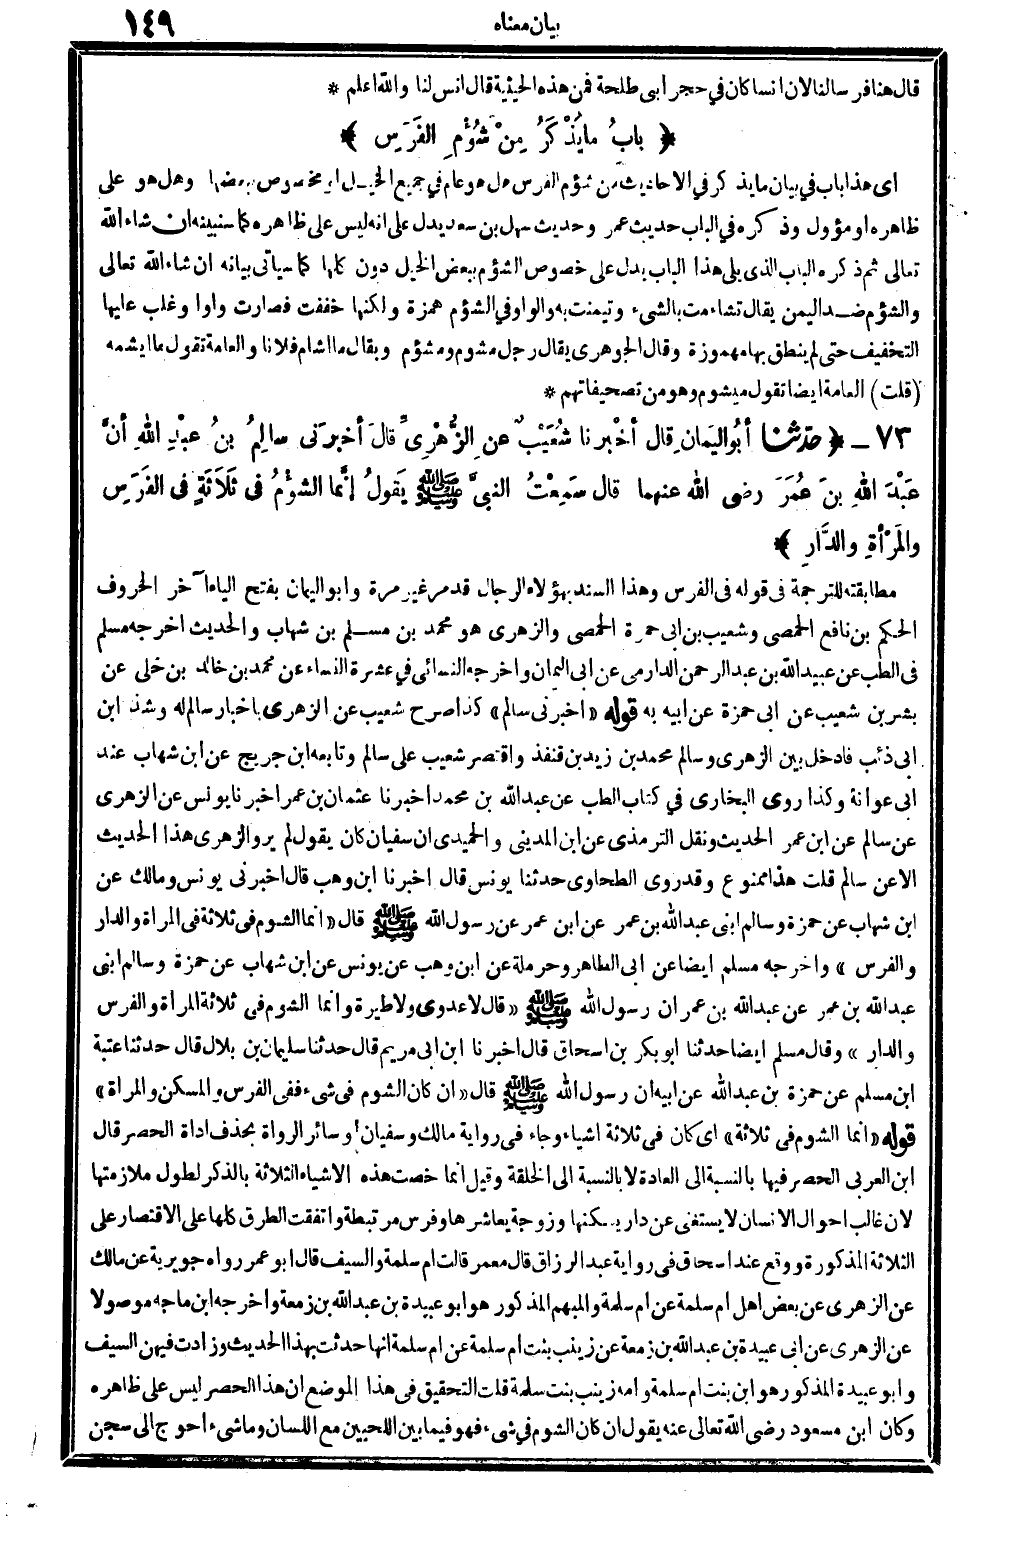 بيان معناه
١٤٩
قال هنا فرسا لنا لان انسا كان في حجر أبى طلحة فمن هذه الحيثية قال انس لنا والله اعلم *
﴿ بابُ ما يُذْكَرُ مِنْ شُؤْمِ الفَرَسِ ﴾
اى هذا باب في بيان ما يذكر في الاحاديث من شؤم الفرس هل هو عام في جميع الخيل او مخصوص ببعضها وهل هو على
ظاهره او مؤول وذكره في الباب حديث عمر وحديث سهل بن سعد يدل على انه ليس على ظاهره كما سنبينه ان شاء الله
تعالى ثم ذكره الباب الذى يلى هذا الباب يدل على خصوص الشؤم ببعض الخيل دون كلها كما سياتى بيانه ان شاء الله تعالى
والشؤم ضد اليمن يقال تشاءمت بالشىء وتيمنت به والواو في الشؤم همزة ولكنها خففت فصارت واوا وغلب عليها
التخفيف حتى لم ينطق بها مهموزة وقال الجوهرى يقال رجل مشوم ومشؤم ويقال ما اشام فلانا والعامة تقول ما ايشمه
(قلت) العامة ايضا تقول ميشوم وهو من تصحيفاتهم *
٧٣ ـ ﴿ حدثنا أبُو اليَمانِ قال أخْبرنا شُعَيْبٌ عنِ الزُّهْرِىِّ قالَ أخبرَنى سالِمُ بنُ عبْدِ اللهِ أنَّ
عَبْدَ اللهِ بنَ عُمَرَ رضى الله عنهما قال سَمِعْتُ النبىَّ ﷺ يَقولُ إنَّما الشؤْمُ فى ثَلَاثَةٍ فى الفَرَسِ
والمَرْأةِ والدَّارِ ﴾
مطابقته للترجمة فى قوله فى الفرس وهذا السند بهؤلاء الرجال قد مر غير مرة وابو اليمان بفتح الياء آخر الحروف
الحكم بن نافع الحمصى وشعيب بن ابى حمزة الحمصى والزهرى هو محمد بن مسلم بن شهاب والحديث اخرجه مسلم
فى الطب عن عبيد الله بن عبد الرحمن الدارمى عن ابى اليمان واخرجه النسائى في عشرة النساء عن محمد بن خالد بن خلى عن
بشر بن شعيب عن ابى حمزة عن ابيه به قوله «اخبرنى سالم» كذا صرح شعيب عن الزهرى باخبار سالم له وشذ ابن
ابى ذئب فادخل بين الزهرى وسالم محمد بن زيد بن قنفذ واقتصر شعيب على سالم وتابعه ابن جريج عن ابن شهاب عند
ابى عوانة وكذا روى البخارى في كتاب الطب عن عبد الله بن محمد اخبرنا عثمان بن عمر اخبرنا يونس عن الزهرى
عن سالم عن ابن عمر الحديث ونقل الترمذى عن ابن المدينى والحميدى ان سفيان كان يقول لم يرو الزهرى هذا الحديث
الا عن سالم قلت هذا ممنوع وقد روى الطحاوى حدثنا يونس قال اخبرنا ابن وهب قال اخبرنى يونس ومالك عن
ابن شهاب عن حمزة وسالم ابنى عبد الله بن عمر عن ابن عمر عن رسول الله ﷺ قال «انما الشوم فى ثلاثة فى المراة والدار
والفرس» واخرجه مسلم ايضا عن ابى الطاهر وحرملة عن ابن وهب عن يونس عن ابن شهاب عن حمزة وسالم ابنى
عبد الله بن عمر عن عبد الله بن عمر ان رسول الله ﷺ «قال لا عدوى ولا طيرة وانما الشوم فى ثلاثة المرأة والفرس
والدار» وقال مسلم ايضا حدثنا ابو بكر بن اسحاق قال اخبرنا ابن ابى مريم قال حدثنا سليمان بن بلال قال حدثنا عتبة
ابن مسلم عن حمزة بن عبد الله عن ابيه ان رسول الله ﷺ قال «ان كان الشوم فى شىء ففى الفرس والمسكن والمراة»
قوله «انما الشوم فى ثلاثة» اى كان فى ثلاثة اشياء وجاء فى رواية مالك وسفيان وسائر الرواة بحذف اداة الحصر قال
ابن العربى الحصر فيها بالنسبة الى العادة لا بالنسبة الى الخلقة وقيل انما خصت هذه الاشياء الثلاثة بالذكر لطول ملازمتها
لان غالب احوال الانسان لا يستغنى عن دار يسكنها وزوجة يعاشرها وفرس مرتبطة واتفقت الطرق كلها على الاقتصار على
الثلاثة المذكورة ووقع عند اسحاق فى رواية عبد الرزاق قال معمر قالت ام سلمة والسيف قال ابو عمر رواه جويرية عن مالك
عن الزهرى عن بعض اهل ام سلمة عن ام سلمة والمبهم المذكور هو ابو عبيدة بن عبد الله بن زمعة واخرجه ابن ماجه موصولا
عن الزهرى عن ابى عبيدة بن عبد الله بن زمعة عن زينب بنت ام سلمة عن ام سلمة انها حدثت بهذا الحديث وزادت فيهن السيف
وابو عبيدة المذكور هو ابن بنت ام سلمة وامه زينب بنت سلمة قلت التحقيق فى هذا الموضع ان هذا الحصر ليس على ظاهره
وكان ابن مسعود رضى الله تعالى عنه يقول ان كان الشوم في شىء فهو فيما بين اللحيين مع اللسان وما شىء احوج الى سجن